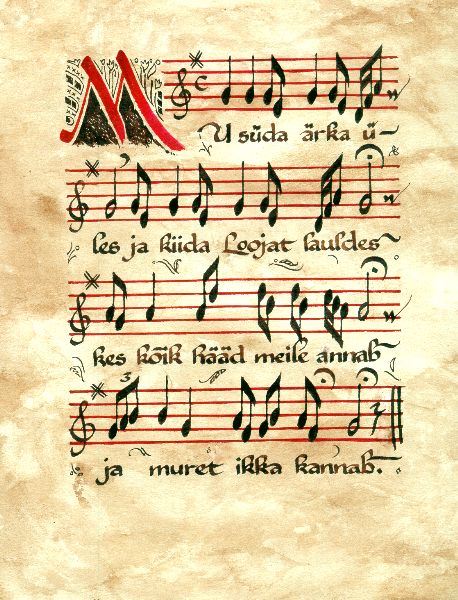 MU süda ärka ü-
les ja kiida Loojat lauldes
kes kõik hääd meile annab
ja muret ikka kannab.